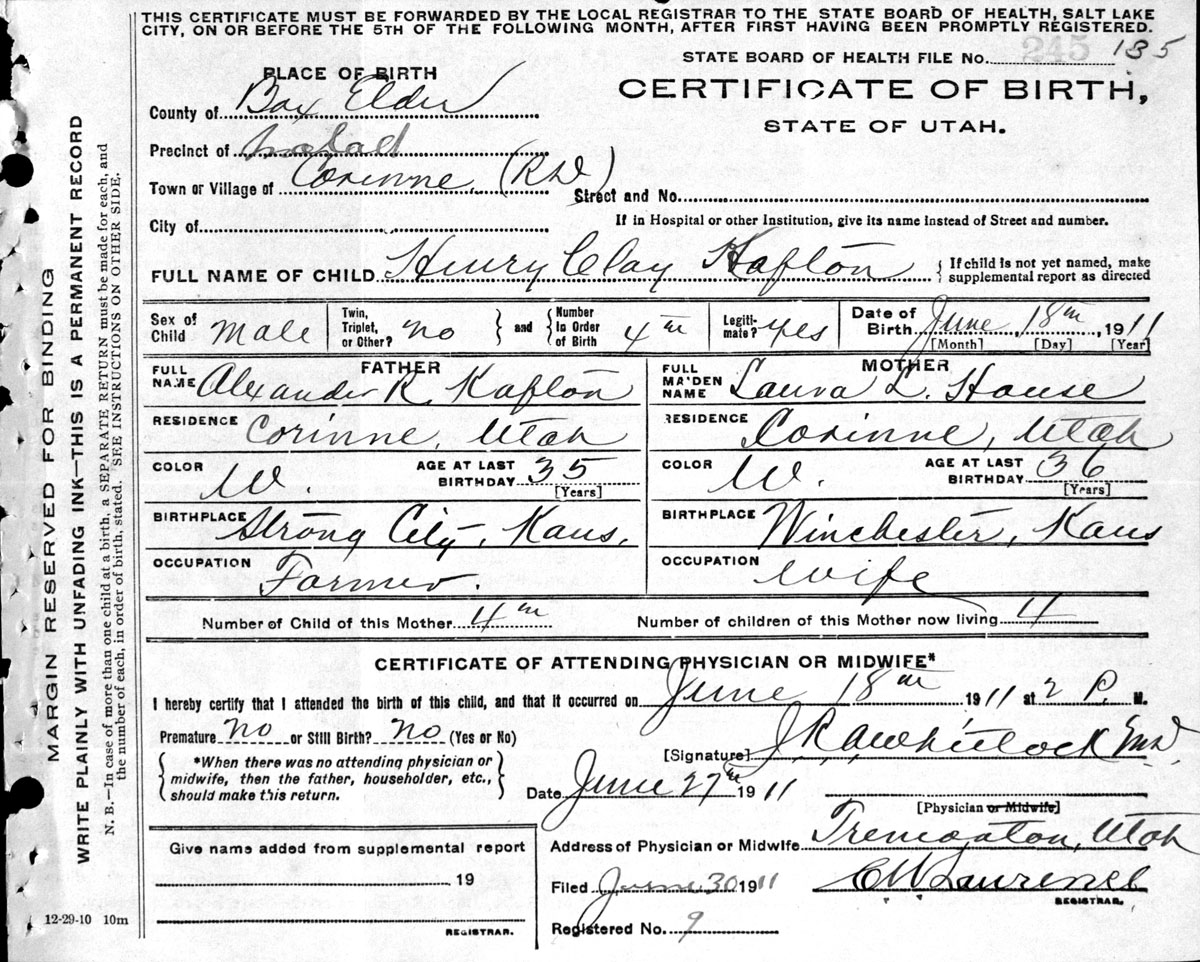 THIS CERTIFICATE MUST BE FORWARDED BY THE LOCAL REGISTRAR TO THE STATE BOARD OF HEALTH, SALT LAKE
CITY, ON OR BEFORE THE 5TH OF THE FOLLOWING MONTH, AFTER FIRST HAVING BEEN PROMPTLY REGISTERED.
STATE BOARD OF HEALTH FILE No. 245 135
PLACE OF BIRTH
CERTIFICATE OF BIRTH,
STATE OF UTAH.
County of Box Elder
Precinct of
Town or Village of Corinne, (RD) Street and No.
City of
If in Hospital or other Institution, give its name instead of Street and number.
FULL NAME OF CHILD Henry Clay Kafton
{ If child is not yet named, make
supplemental report as directed
Sex of Child Male
Twin, Triplet, or Other? no } and { Number In Order of Birth 4th
Legiti- mate? yes
Date of Birth June, 18th, 1911
[Month] [Day] [Year]
FATHER
FULL NAME Alexander R. Kafton
RESIDENCE Corinne, Utah
COLOR W. AGE AT LAST BIRTHDAY 35
[Years]
BIRTHPLACE Strong City, Kans.
OCCUPATION Farmer.
MOTHER
FULL MAIDEN NAME Laura L. House
RESIDENCE Corinne, Utah
COLOR W. AGE AT LAST BIRTHDAY 36
[Years]
BIRTHPLACE Winchester, Kans
OCCUPATION Wife
Number of Child of this Mother 4th Number of children of this Mother now living 4
CERTIFICATE OF ATTENDING PHYSICIAN OR MIDWIFE*
I hereby certify that I attended the birth of this child, and that it occurred on June 18th 1911 at 2 P. M.
Premature no or Still Birth? no (Yes or No)
[Signature]
{ *When there was no attending physician or
midwife, then the father, householder, etc.,
should make this return. }
Date June 27th 1911
[Physician or Midwife]
Address of Physician or Midwife Tremonton, Utah
Filed June 30 1911 C W Lawrence
REGISTRAR.
Registered No. 9
Give name added from supplemental report
19
REGISTRAR.
12-29-10 10m
MARGIN RESERVED FOR BINDING
WRITE PLAINLY WITH UNFADING INK—THIS IS A PERMANENT RECORD
N. B.—In case of more than one child at a birth, a SEPARATE RETURN must be made for each, and
the number of each, in order of birth, stated. SEE INSTRUCTIONS ON OTHER SIDE.